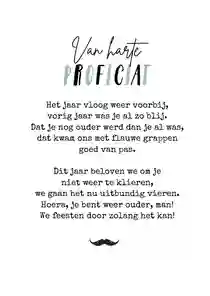 Van harte
PROFICIAT
Het jaar vloog weer voorbij,
vorig jaar was je al zo blij.
Dat je nog ouder werd dan je al was,
dat kwam ons met flauwe grappen
goed van pas.
Dit jaar beloven we om je
niet weer te klieren,
we gaan het nu uitbundig vieren.
Hoera, je bent weer ouder, man!
We feesten door zolang het kan!